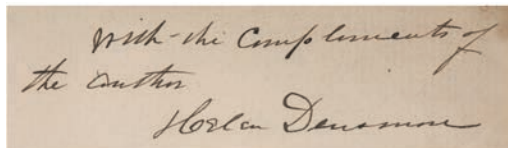 with the Compliments of
the author
Horlan Densmore